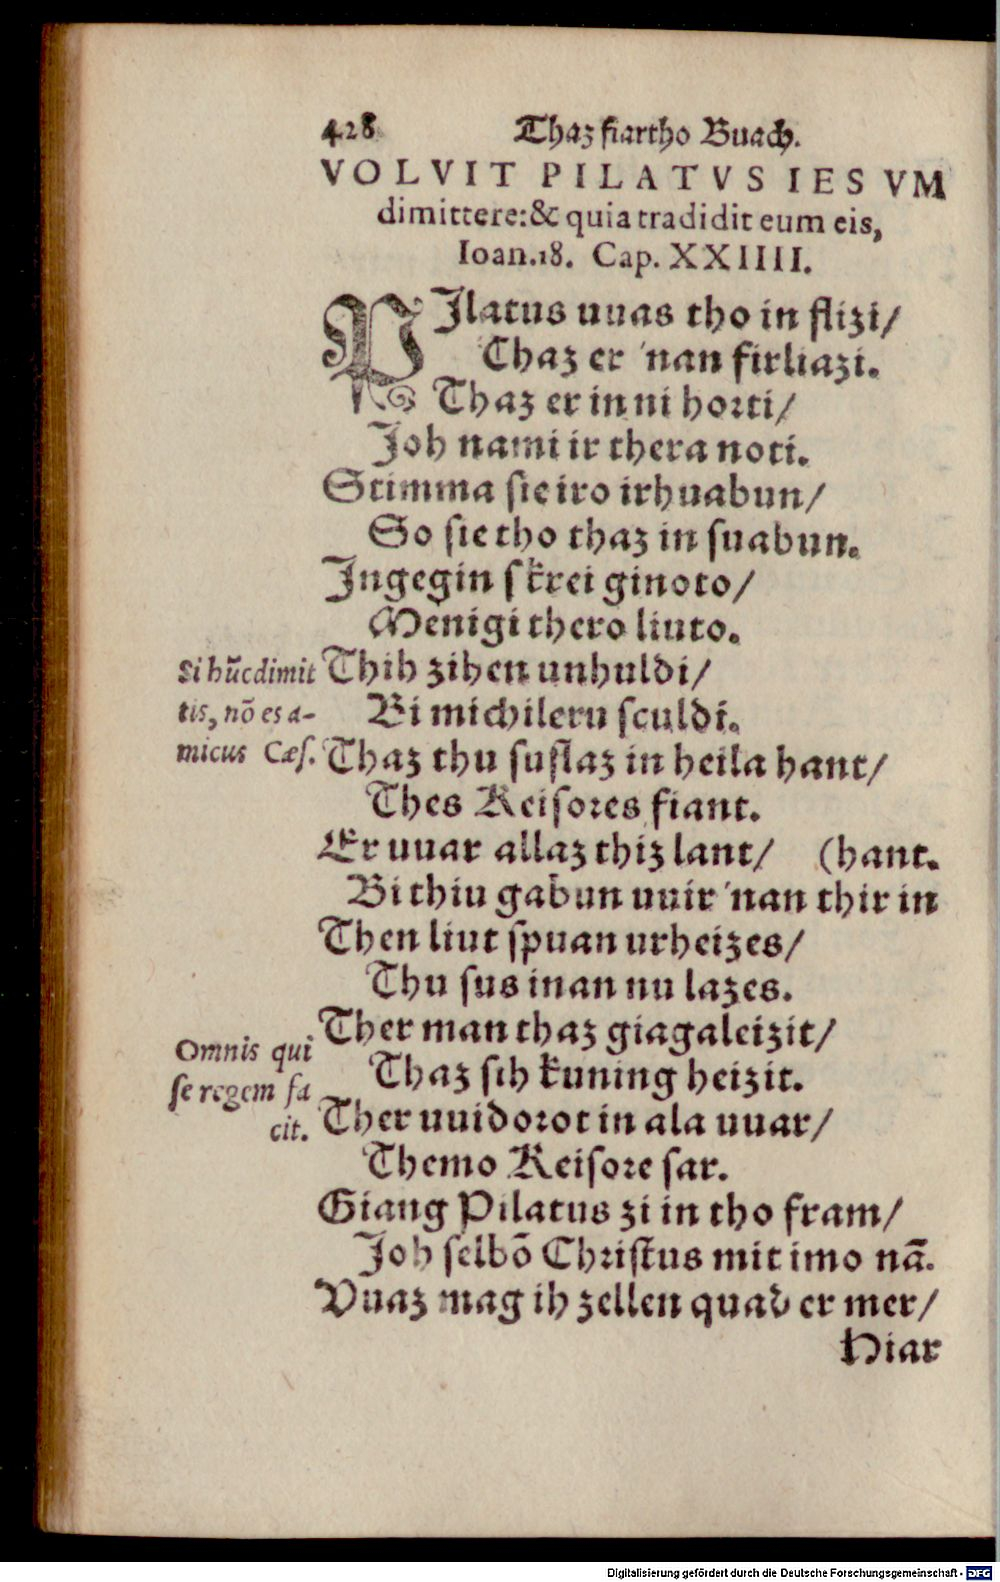 428 Thaz fiartho Buach.
VOLVIT PILATVS IESVM
dimittere: & quia tradidit eum eis,
Ioan.18. Cap. XXIIII.
PIlatus uuas tho in flizi/
Thaz er 'nan firliazi.
Thaz er in ni horti/
Joh nami ir thera noti.
Stimma sie iro irhuabun/
So sie tho thaz in suabun.
Ingegin skrei ginoto/
Menigi thero liuto.
Si hũc dimit
tis, nõ es a-
micus Cæſ.
Thih zihen unhuldi/
Bi michileru sculdi.
Thaz thu suslaz in heila hant/
Thes Keisores fiant.
Er uuar allaz thiz lant/ (hant.
Bi thiu gabun uuir 'nan thir in
Then liut spuan urheizes/
Thu sus inan nu lazes.
Omnis qui
ſe regem fa
cit.
Ther man thaz giagaleizit/
Thaz sih kuning heizit.
Ther uuidorot in ala uuar/
Themo Keisore sar.
Giang Pilatus zi in tho fram/
Joh selbõ Christus mit imo nã.
Vuaz mag ih zellen quad er mer/
Hiar
Digitalisierung gefördert durch die Deutsche Forschungsgemeinschaft - DFG